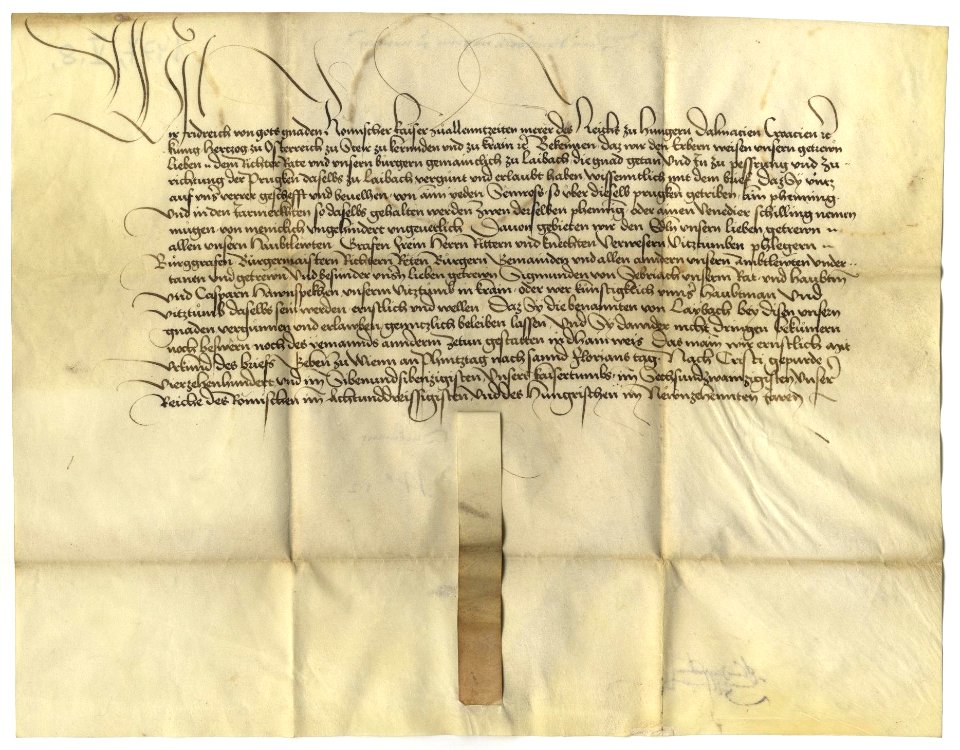 Wir Fridreich von gots gnaden Römischer kaiser zu allenntzeiten merer des Reichs zu Hungern Dalmacien Croacien etc
kunig Hertzog zu Österreich zu Steir zu kernnden und zu krain etc Bekennen daz wir den Erbern weisen unsern getrewn
lieben n dem Richter Rate und unsern burgern gemainclich zu laibach die gnad getan und In zu pessrung und zu
richtung der Prugken daselbs zu laibach vergunt und erlaubt haben wissentlich mit dem brief Daz Sy untz
auf unser verrer geschefft und bevelhen von ainem yeden Semross so uber dieselb prugken getriben ain phenning
Und in den Jarmerkten so daselbs gehalten werden zwen derselben phenning oder ainen Venedier schilling nemen
mugen von menicklich ungehindert ungeverlich Davon gebieten wir den Edln unsern lieben getrewn n
allen unsern Haubtlewten Grafen frein Herrn Rittern und knechten Verwesern Vitztumben phlegern
Burggrafen Burgermaistern Richtern Reten Burgern Gemainden und allen anndern unsern ambtlewten under
tanen und getrewn Und besunder unsern lieben getrewn Sigmunden von Sebriach unserm Rat und haubtman
Und Casparn Hawnspekhen unserm Vitztumb in krain oder wer kunftigklich unser Haubtman Und
Vitztumb daselbs sein werden ernstlich und wellen Daz Sy die benannten von Laybach bey disen unsern
gnaden vergunnen und erlauben genntzlich beleiben lassen Und Sy dawider nicht dringen bekumern
noch beswern noch des yemannds anndern zetun gestatten in dhain weis Das main wir ernstlich mit
Urkund des briefs Geben zu Wienn an Phintztag nach sannd Florians tag Nach Cristi gepurde
Vierzehenhundert und im Sibenundsibenzigisten Unsers kaisertumbs im Sechsundzwainzigisten Unser
Reiche des Römischen im Achtunddreissigisten Und des Hungrischen im Newnzehennten Jaren